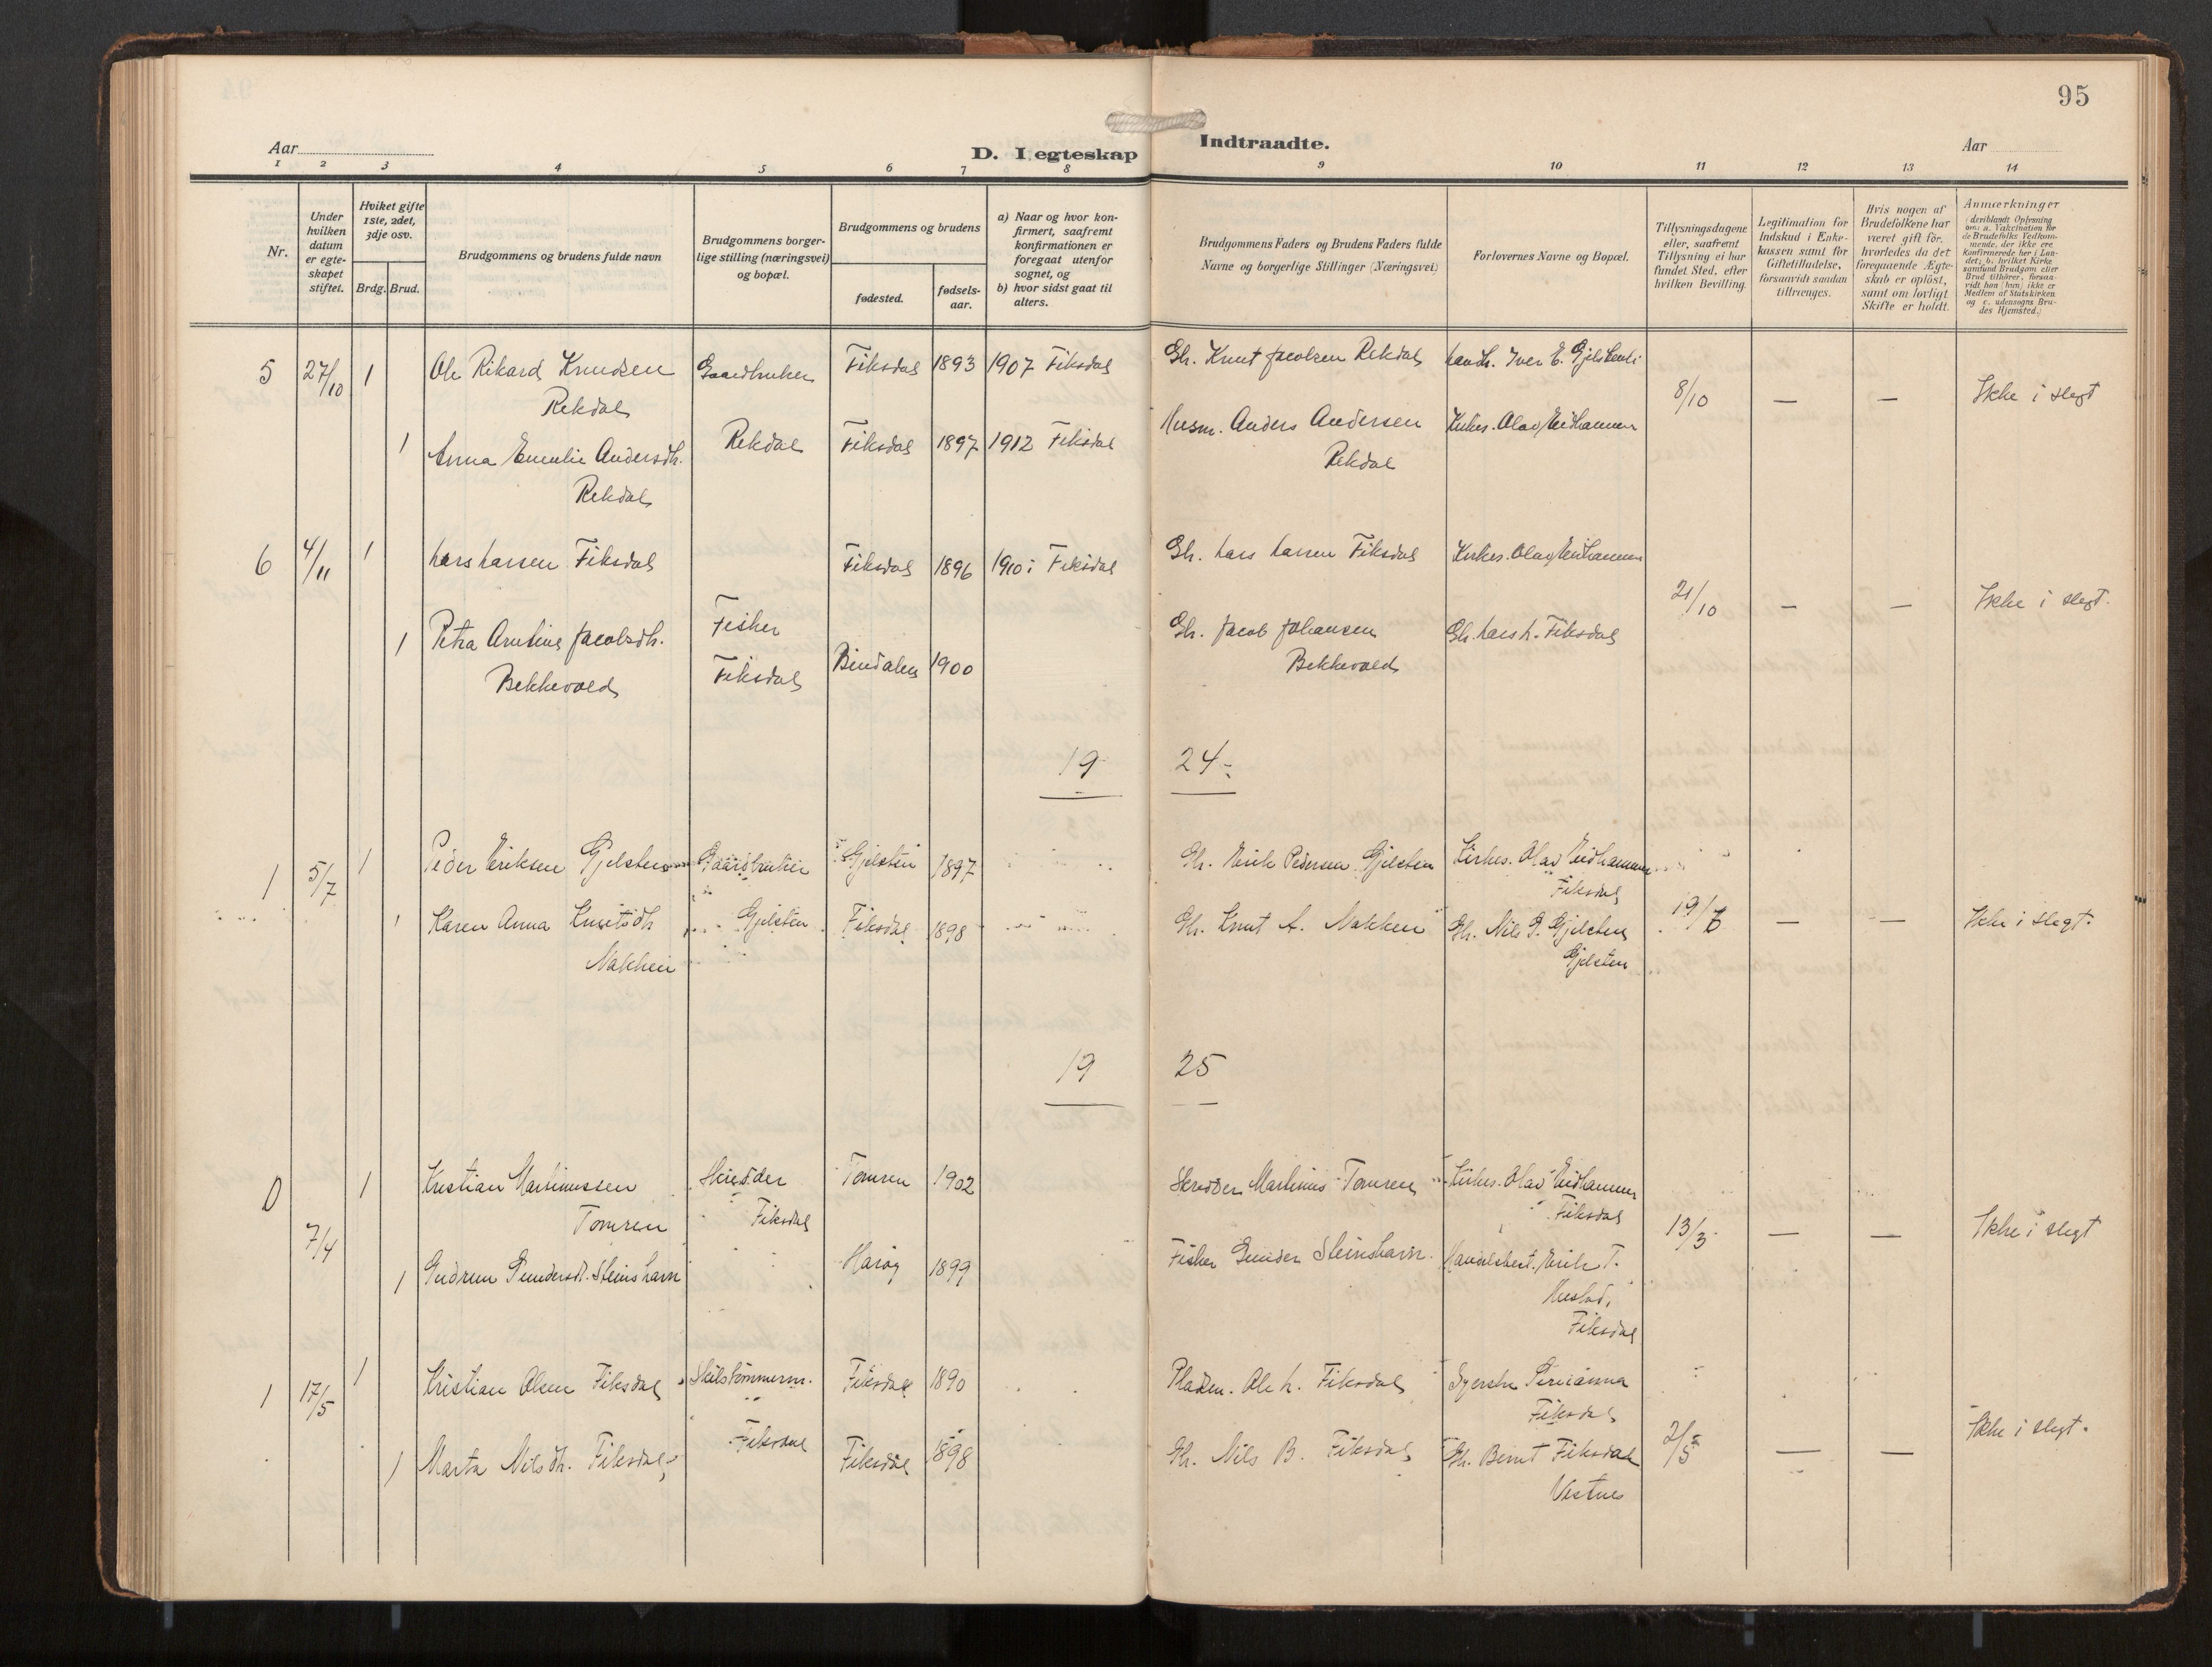 95
Aar
D. I egteskap
Indtraadte.
Aar
1 2 3 4 5 6 7 8 9 10 11 12 13 14
Nr.
Under
hvilken
datum
er egte-
skapet
stiftet.
Hviket gifte
1ste, 2det,
3dje osv.
Brdg. Brud.
Brudgommens og brudens fulde navn
Brudgommens borger-
lige stilling (næringsvei)
og bopæl.
Brudgommens og brudens
fødested.
fødsels-
aar.
a) Naar og hvor kon-
firmert, saafremt
konfirmationen er
foregaat utenfor
sognet, og
b) hvor sidst gaat til
alters.
Brudgommens Faders og Brudens Faders fulde
Navne og borgerlige Stillinger (Næringsvei)
Forlovernes Navne og Bopæl.
Tillysningsdagene
eller, saafremt
Tillysning ei har
fundet Sted, efter
hvilken Bevilling.
Legitimation for
Indskud i Enke-
kassen samt for
Giftetilladelse,
forsaavidt saadan
tiltrænges.
Hvis nogen af
Brudefolkene har
været gift før,
hvorledes da det
foregaaende Ægte-
skab er opløst,
samt om lovligt
Skifte er holdt.
Anmærkninger
(deriblandt Oplysning
om: a. Vakcination for
de Brudefolks Vedkom-
mende, der ikke ere
Konfirmerede her i Lan-
det; b. hvilket Kirke
samfund Brudgom eller
Brud tilhører, forsaa-
vidt han (hun) ikke er
Medlem af Statskirken
og c. udensogns Bru-
des Hjemsted.)
5 27/10 1 Ole Rikard Knudsen Gaardbruker Fiksdal 1893 1907 Fiksdal Gbr. Knut Jacobsen Rekdal Landh. Iver E. Gjelstenli
Rekdal 8/10 — — Ikke i slegt
1 Anna Emelie Andersdtr. Rekdal Fiksdal 1897 1912 Fiksdal Husm. Anders Andersen Kirkes. Olav Eidhammer
Rekdal Rekdal
6 4/11 1 Lars Larsen Fiksdal Fiksdal 1896 1910 i Fiksdal Gbr. Lars Larsen Fiksdal Kirkes. Olav Eidhammer
21/10 — — Ikke i slegt.
1 Petra Arntine Jacobsdtr. Fisker Gbr. Jacob Johansen Gbr. Lars L. Fiksdal
Bekkevold Fiksdal Bindalen 1900 Bekkevold
19 24.
1 5/7 1 Peder Eriksen Gjelsten Gaardbruker Gjelsten 1897 Gbr. Erik Pedersen Gjelsten Kirkes. Olav Eidhammer
Fiksdal
1 Karen Anna Knutsdtr. Gjelsten Fiksdal 1898 Gbr. Knut A. Nakken Gbr. Nils P. Gjelsten 19/6 — — Ikke i slegt.
Nakken Gjelsten
19 25
0 1 Kristian Martinussen Tomren 1902 Skredder Martinus Tomren Kirkes. Olav Eidhammer
Tomren Fiksdal Fiksdal
7/4 13/3 — — Ikke i slegt
1 Gudrun Gundersdt. Steinshavn Harøy 1899 Fisker Gunder Steinshavn. Handelsbest. Erik T.
Hustad,
Fiksdal
1 17/5 1 Kristian Olsen Fiksdal Fiksdal 1890 Pladsm. Ole L. Fiksdal Syerske
Fiksdal
Fiksdal 2/5 — — Ikke i slegt.
1 Marta Nilsdtr. Fiksdal, Fiksdal 1898 Gbr. Nils B. Fiksdal Gbr. Bernt Fiksdal
Vestnes